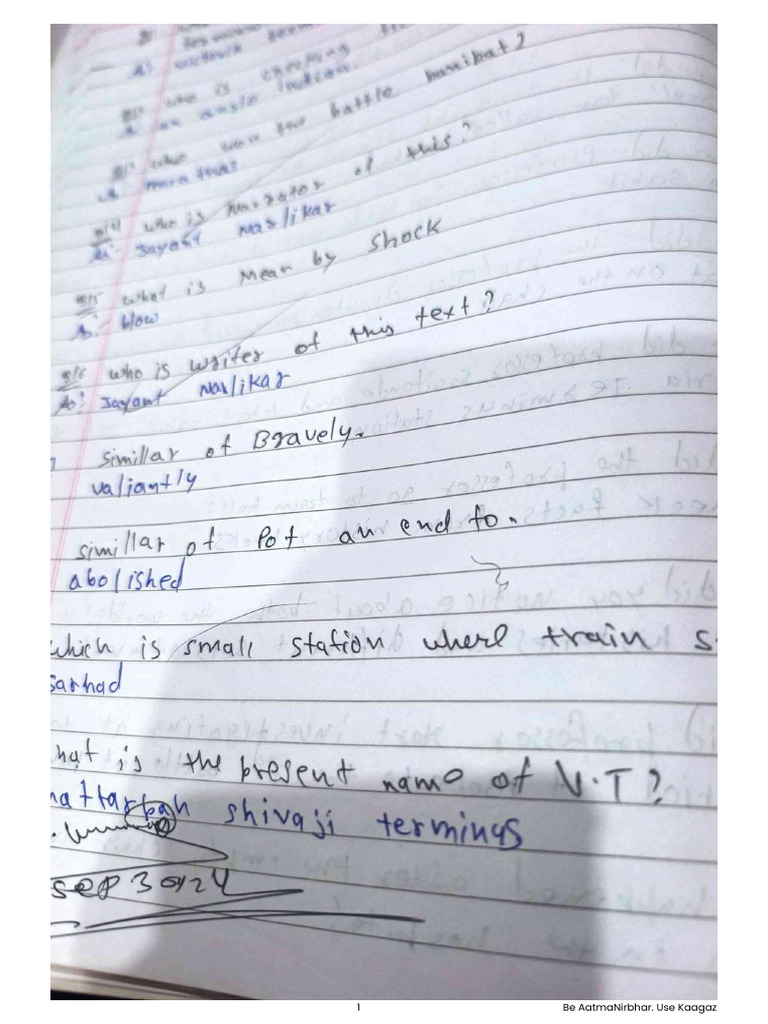 who is checking
A: an anglo Indian.
who won the battle Panipat?
A: marathas
Q14 who is narrator of this?
A:- Jayant Narlikar
Q15 what is mean by Shock
A:- blow
Q16 who is writer of this text?
A: Jayant Narlikar
simillar of Bravely.
valiantly
simillar of Pot an end to.
abolished
which is small station where train s
sarhad
hat is the present name of V.T?
hattarpah shivaji terminus
Sep 30/24
1
Be AatmaNirbhar. Use Kaagaz